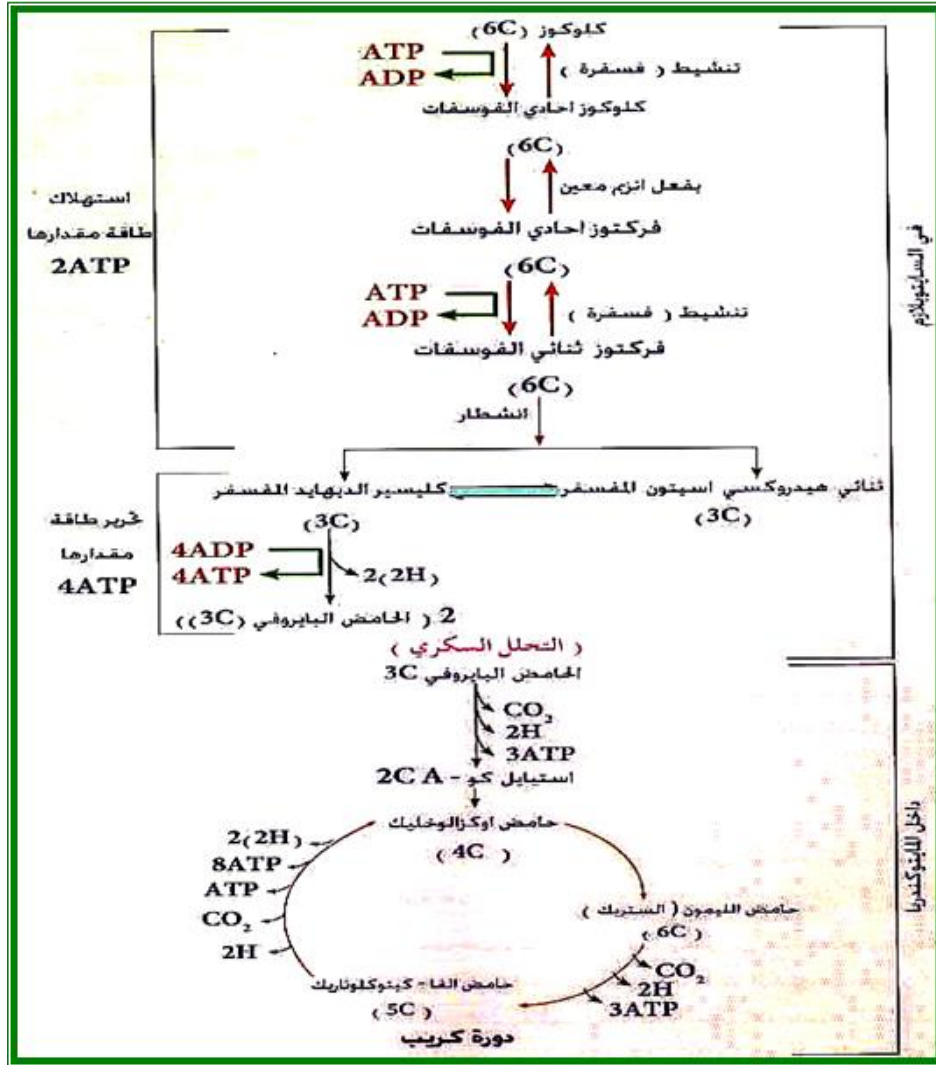 كلوكوز (6C)
ATP
ADP
تنشيط ( فسفرة )
كلوكوز احادي الفوسفات
(6C)
بفعل انزيم معين
فركتوز احادي الفوسفات
(6C)
ATP
ADP
تنشيط ( فسفرة )
فركتوز ثنائي الفوسفات
(6C)
انشطار
استهلاك
طاقة مقدارها
2ATP
في السايتوبلازم
ثنائي هيدروكسي اسيتون المفسفر
(3C)
كليسير الديهايد المفسفر
(3C)
4ADP
4ATP
2(2H)
تحرير طاقة
مقدارها
4ATP
2 ( الحامض البايروفي (3C))
( التحلل السكري )
الحامض البايروفي 3C
CO₂
2H
3ATP
استيايل كو - 2C A
حامض اوكزالوخليك
(4C)
2(2H)
8ATP
ATP
CO₂
2H
حامض الليمون ( الستريك )
(6C)
CO₂
2H
3ATP
حامض الفا - كيتوكلوتاريك
(5C)
دورة كريب
داخل المايتوكندريا